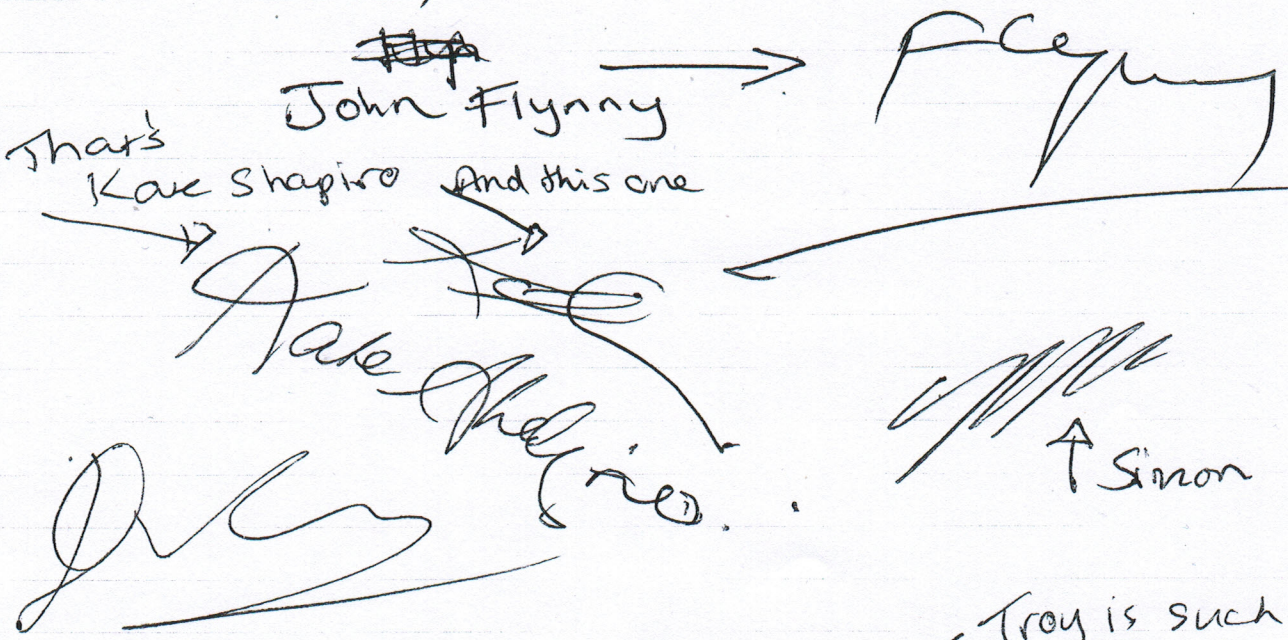 John Flynny
Flynny
That's
Kate Shapiro And this one
Kate Shapiro.
Simon
Troy is such